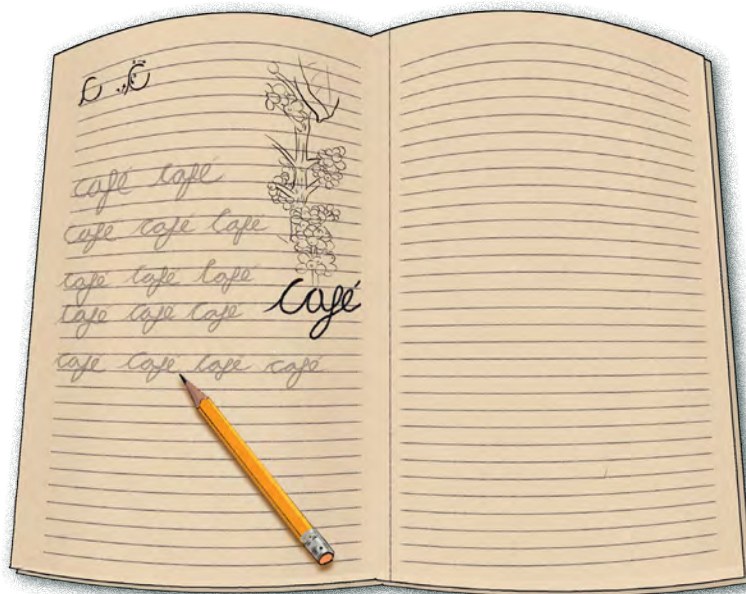 café café
café café café
café café café
café café café
café
café café café café